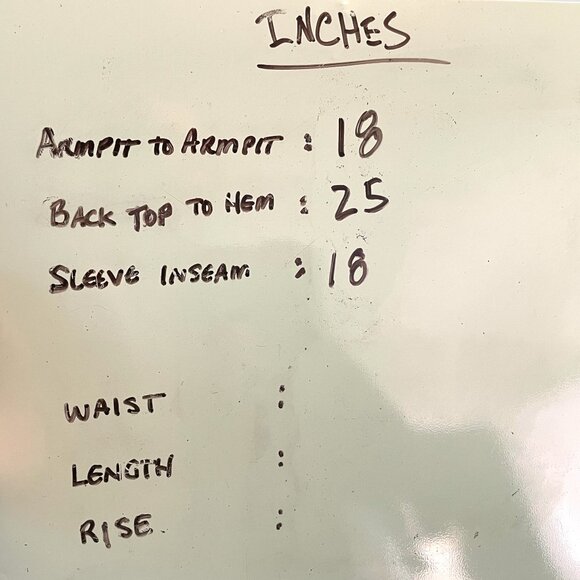 INCHES
ARMPIT TO ARMPIT : 18
BACK TOP TO HEM : 25
SLEEVE INSEAM : 18
WAIST :
LENGTH :
RISE :